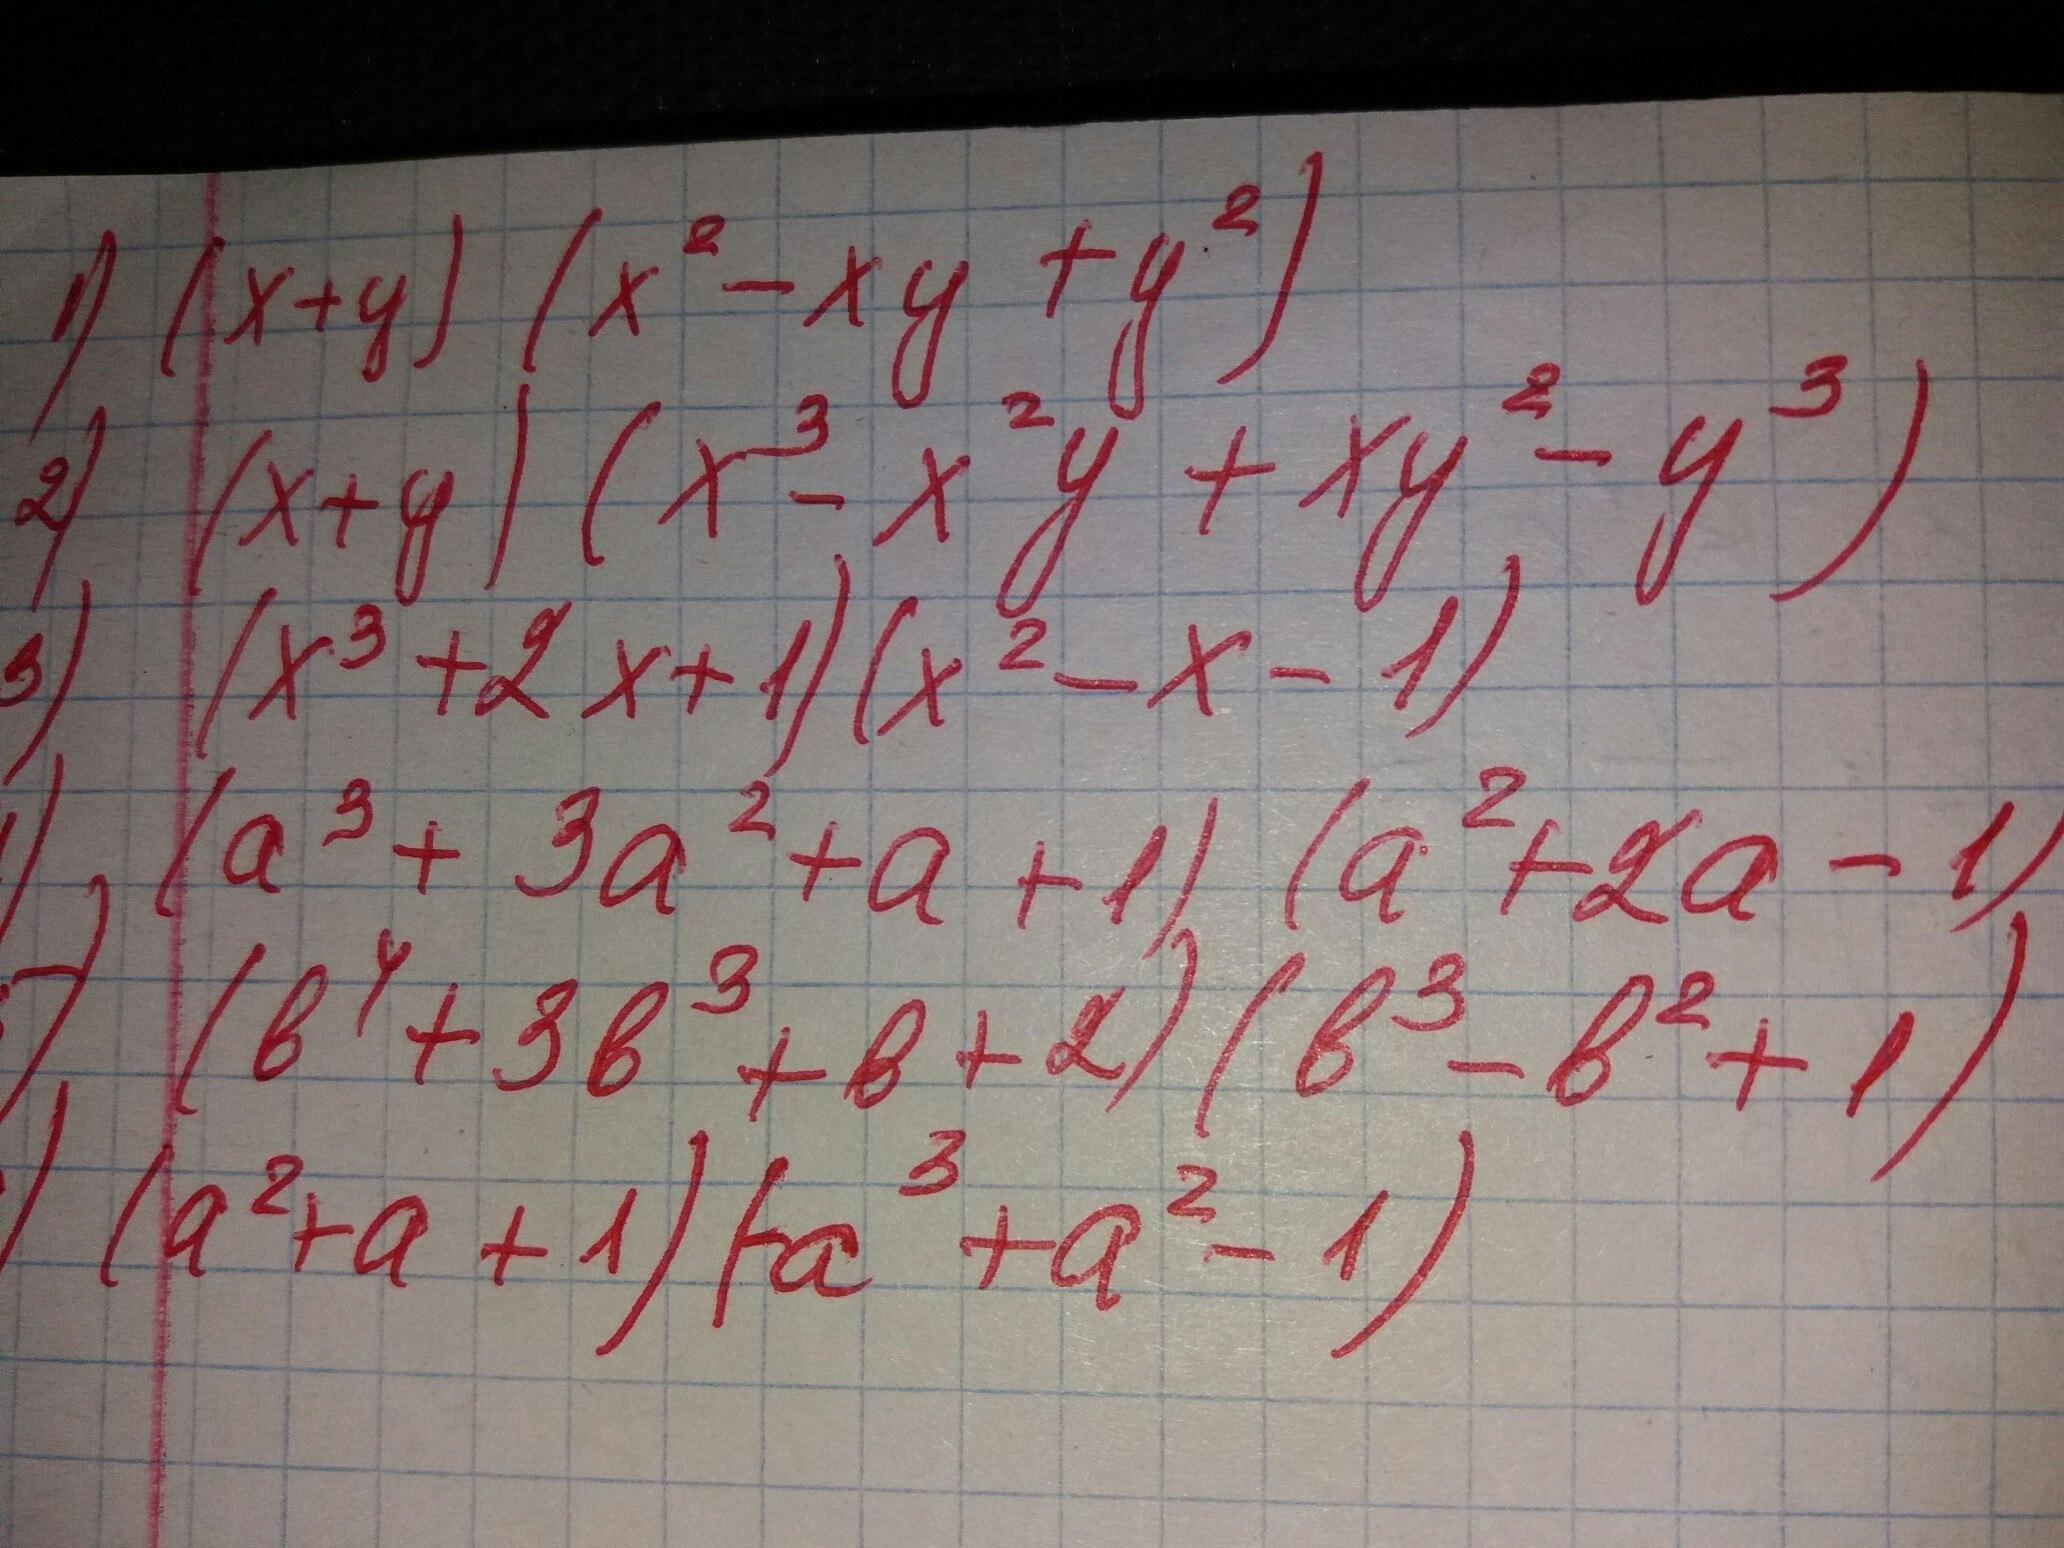 1) (x+y) (x² - xy + y²)
2) (x+y) (x³ - x²y + xy² - y³)
3) (x³ + 2x + 1) (x² - x - 1)
) (a³ + 3a² + a + 1) (a² + 2a - 1)
5) (b⁴ + 3b³ + b + 2) (b³ - b² + 1)
) (a² + a + 1) (-a³ + a² - 1)